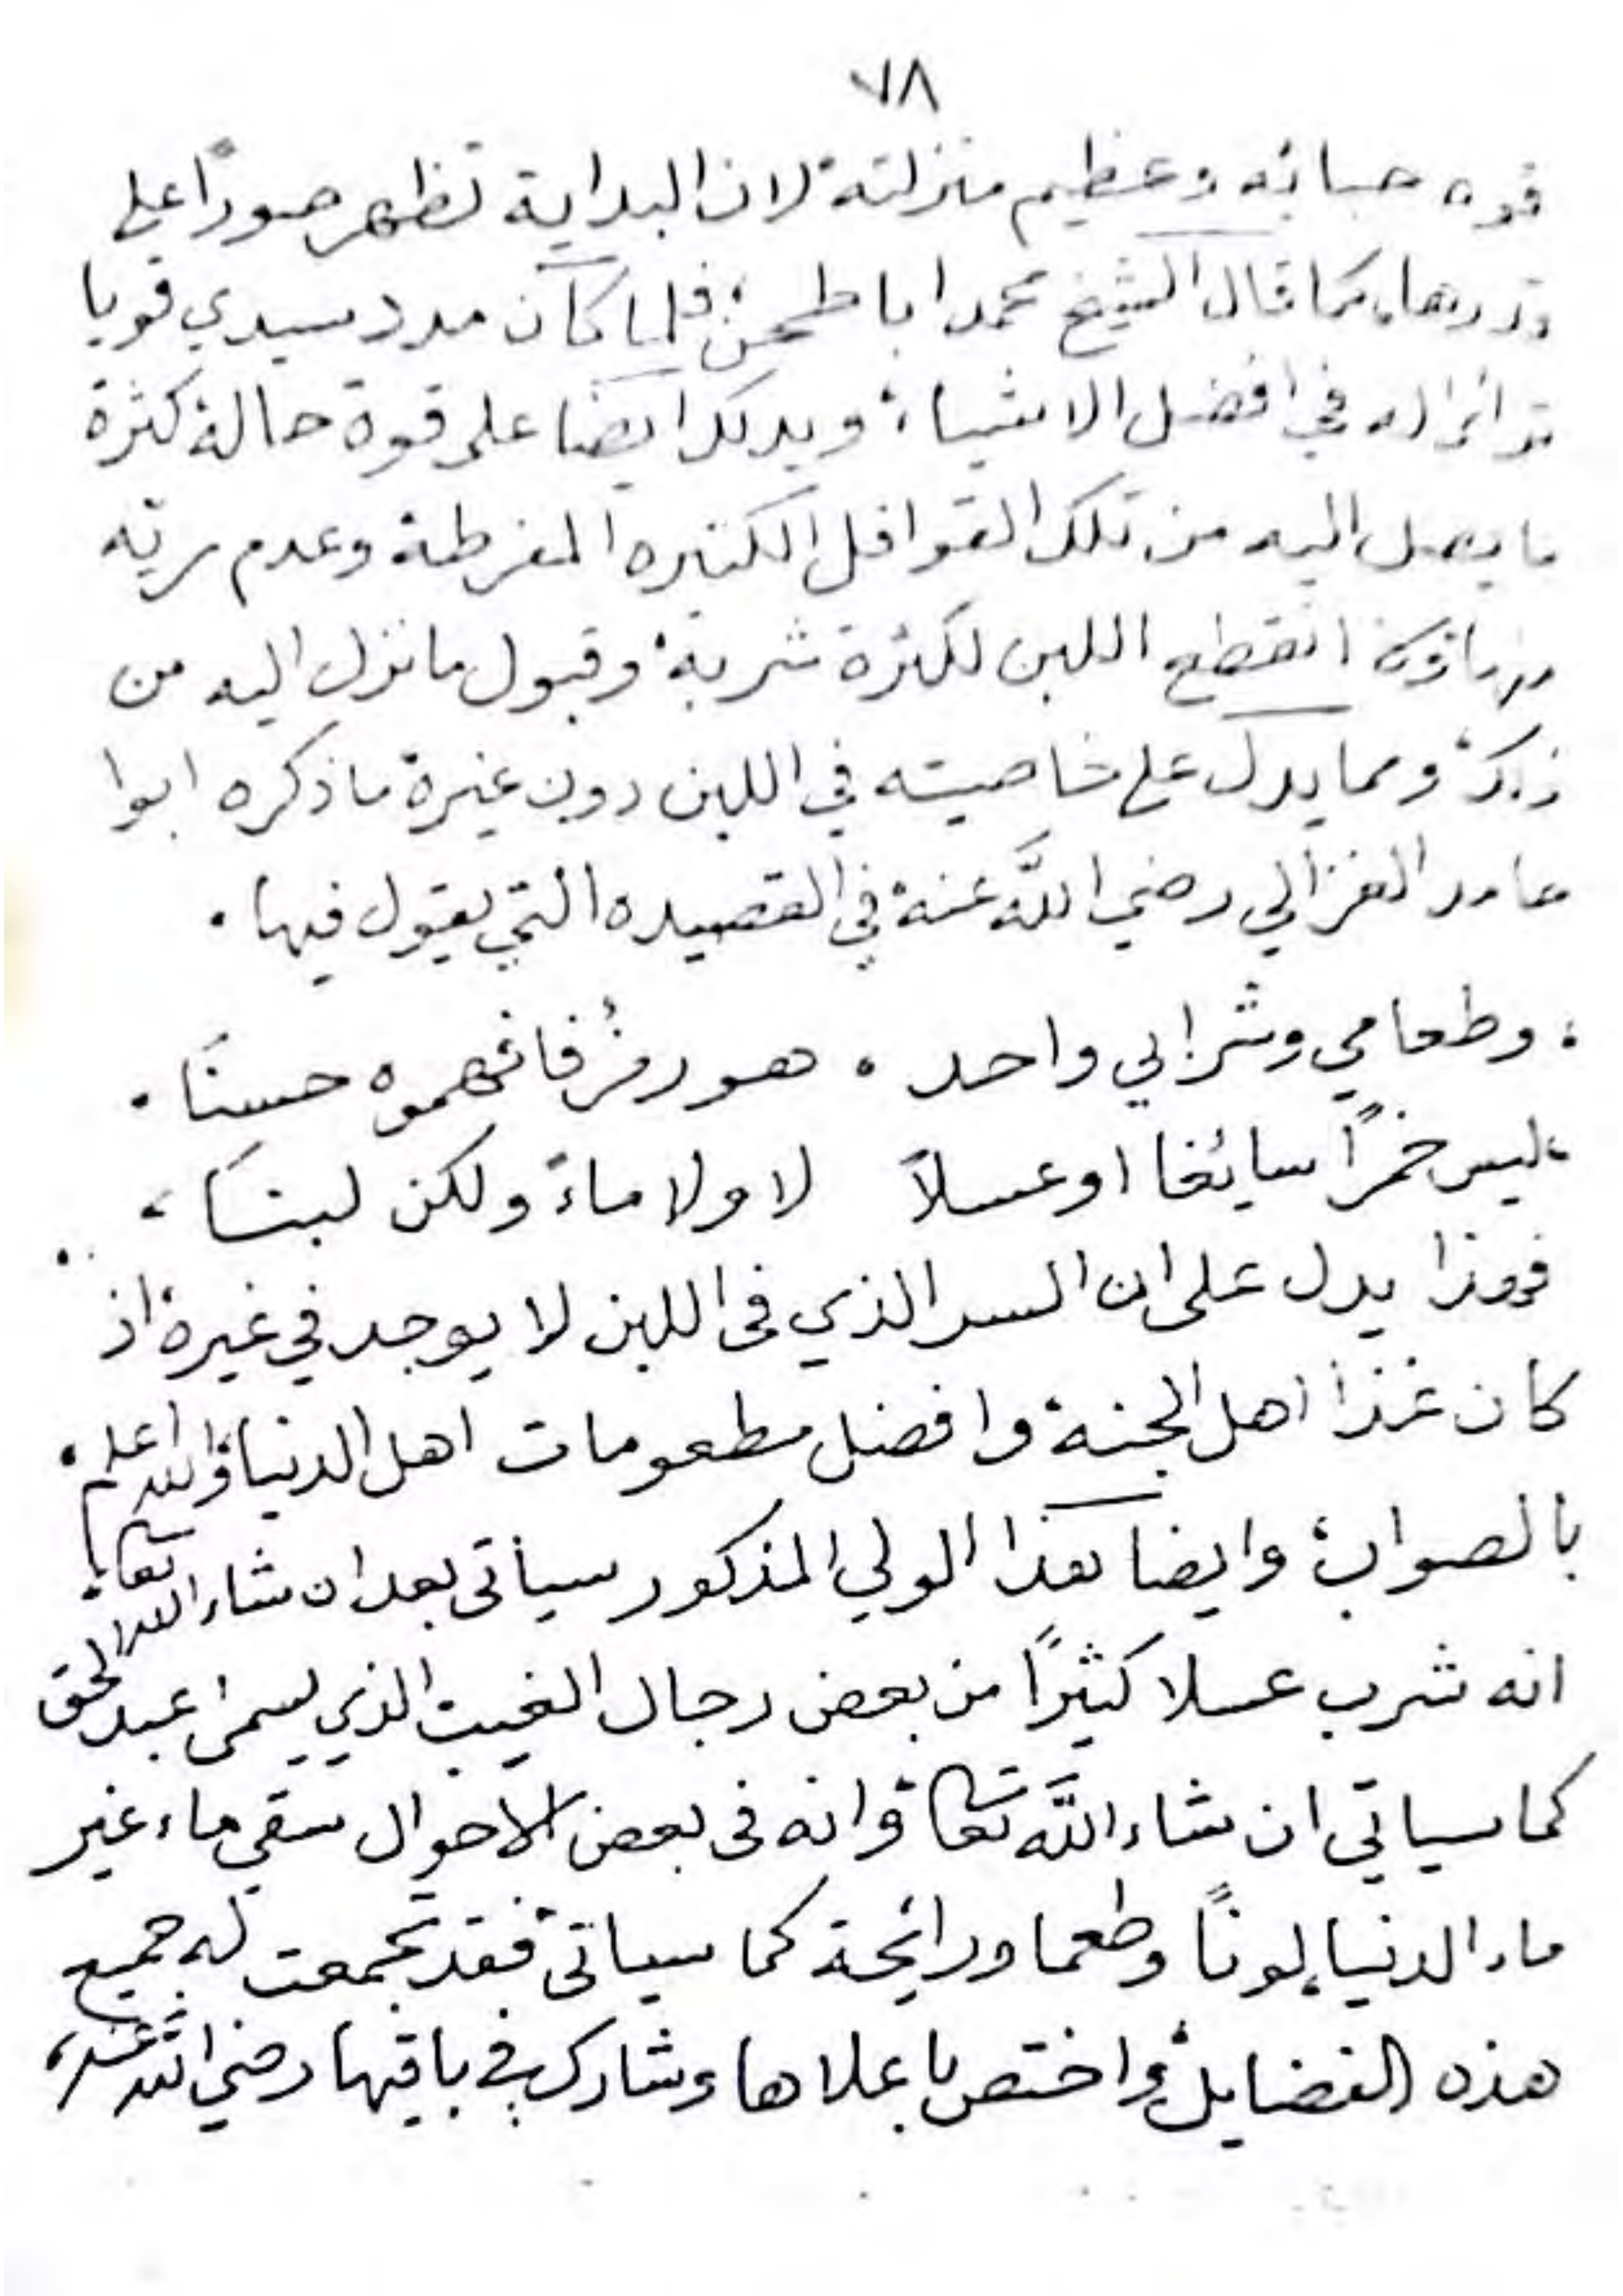 ٧٨
قوه حبابه وعظيم منزلته لان البداية تظهر صورًا على
قدرها، كما قال الشيخ محمد ابا طحن، فلما كان مدد سيدي قويا
تراءى له في افضل الاشياء، ويدلك ايضا على قوة حالة كثرة
ما يصل اليه من تلك القوافل الكثيره المفرطة وعدم ريه
انقطع اللبن لكثرة شربه وقبول ما نزل اليه من
ذلك ومما يدل على خاصيته في اللبن دون غيرة ما ذكره ابوا
حامد الغزالي رضي اللَّه عنه في القصيده التي يقول فيها .
؛ وطعامي وشرابي واحد ، هو رمزُ فافهموه حسنًا .
،ليس خمرًا سائغا او عسلاً لا ولا ماءً ولكن لبنًا ،
فهذا يدل على ان السر الذي فى اللبن لا يوجد في غيرة اذ
كان غذا اهل الجنة وافضل مطعومات اهل الدنيا والله اعلم
بالصواب؛ وايضا هذا الولي المذكور سيأتى بعد ان شاء الله تعالى
انه شرب عسلا كثيرًا من بعض رجال الغيب الذي يسمى عبد الحق
كما سياتي ان شاء اللَّه تعالى وانه فى بعض الاحوال سقي ماء غير
ماء الدنيا لونًا وطعما ورائحة كما سياتى فقد تجمعت له جميع
هذه الفضايل واختص باعلاها وشارك في باقيها رضي الله عنه،